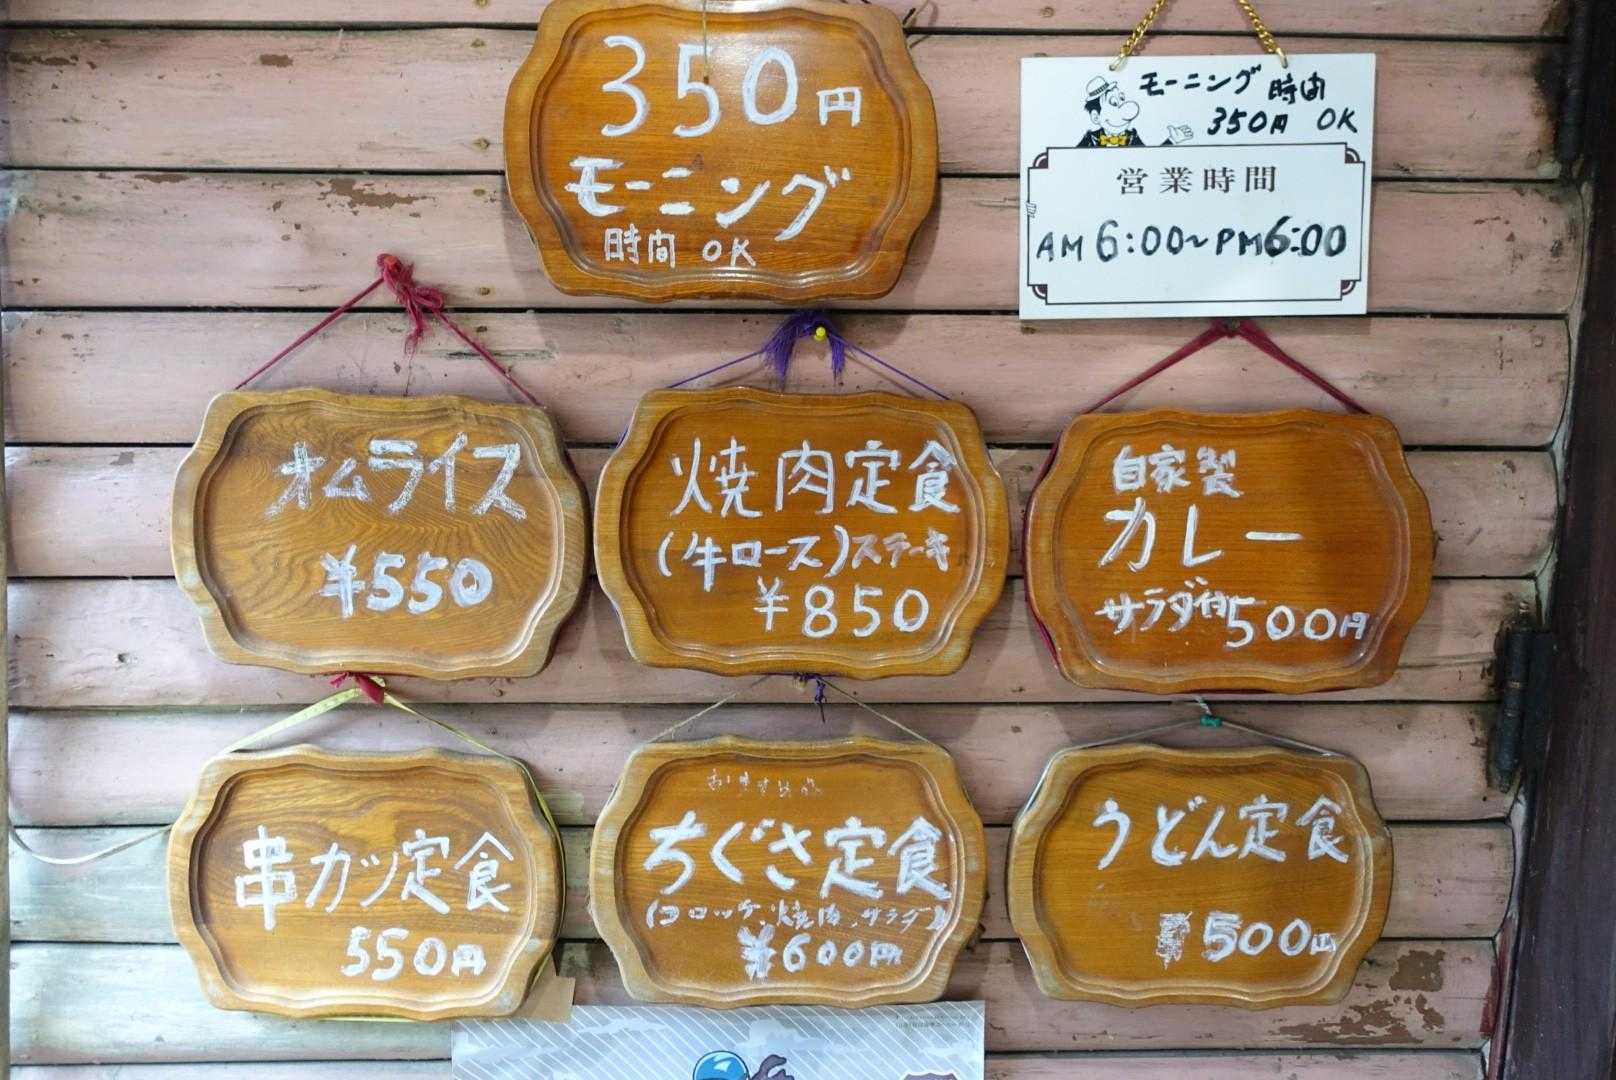 350円
モーニング
時間 OK
モーニング 時間
350円 OK
営業時間
AM 6:00~PM6:00
オムライス
¥550
焼肉定食
(牛ロース)ステーキ
¥850
自家製
カレー
サラダ付500円
串カツ定食
550円
おすすめ品
ちぐさ定食
(コロッケ、焼肉、サラダ)
¥600円
うどん定食
500円